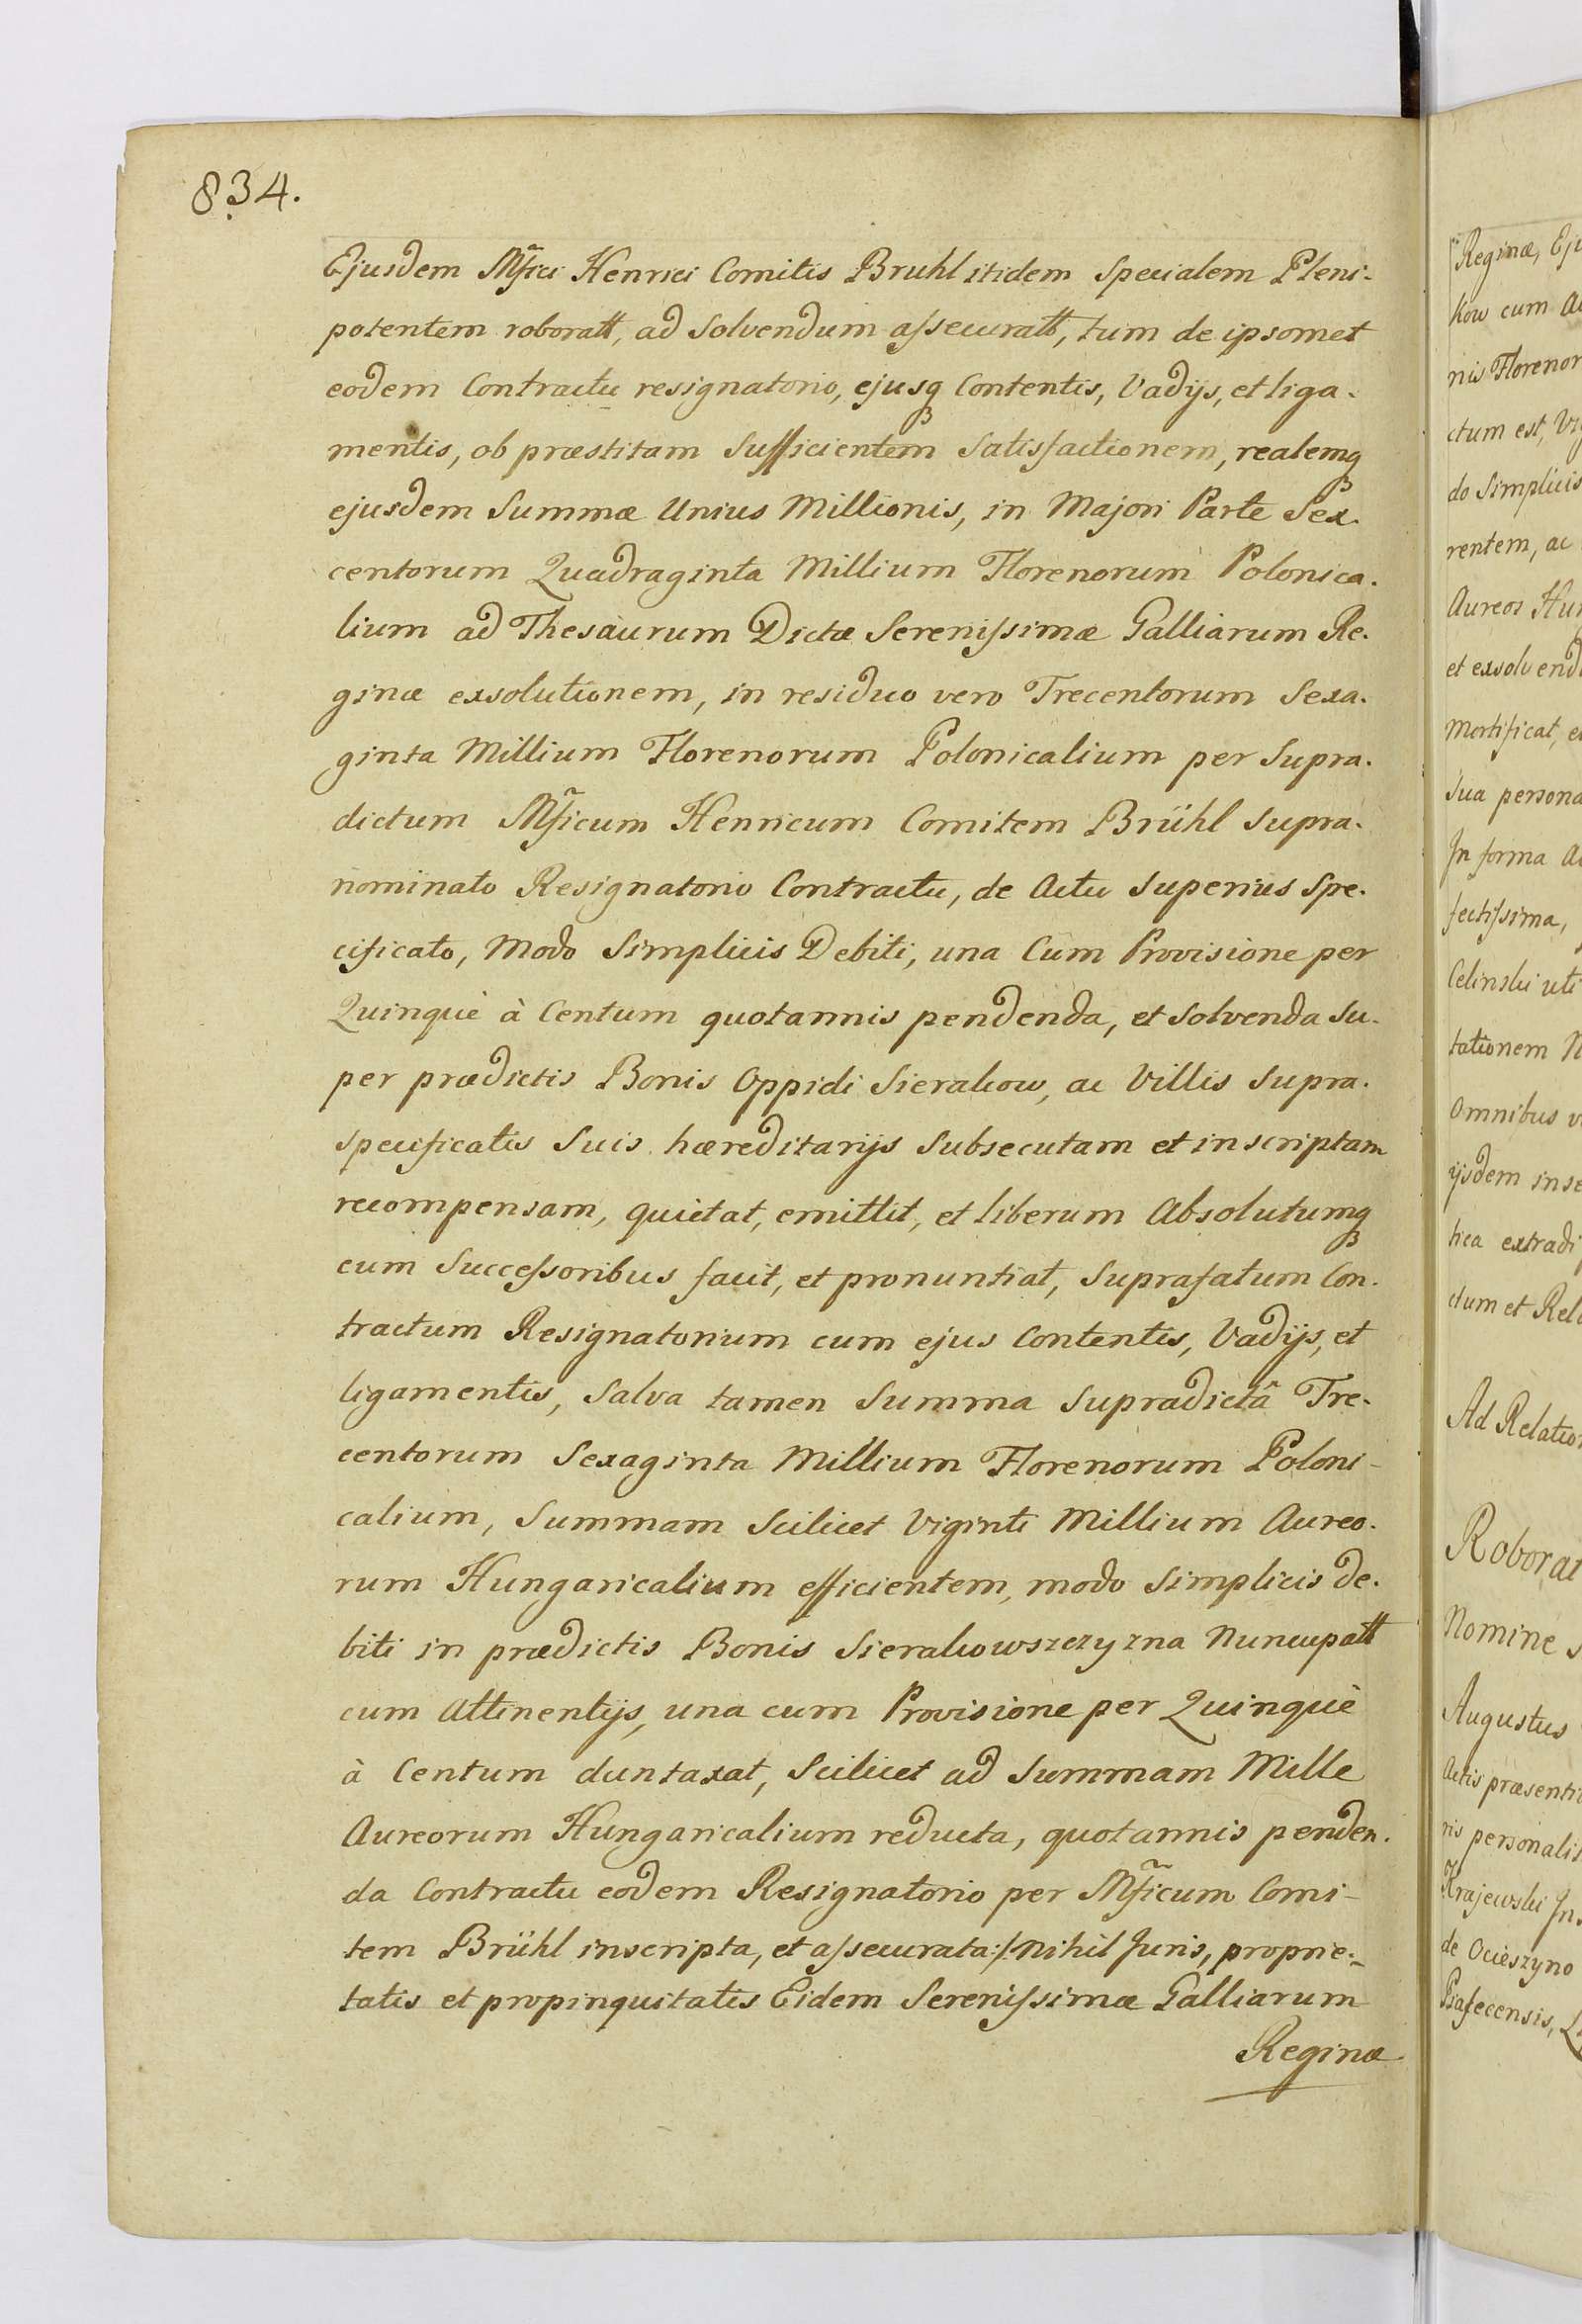 834.
Ejusdem Mfici Henrici Comitis Bruhl itidem Specialem Pleni-
potentem roboratt, ad Solvendum assecuratt, tum de ipsomet
eodem Contractu resignatorio, ejusq Contentis, Vadijs, et liga-
mentis, ob præstitam Sufficientem Satisfactionem, realemq
ejusdem Summæ Unius Millionis, in Majori Parte Sex-
centorum Quadraginta Millium Florenorum Polonica-
lium ad Thesaurum Dictæ Serenissimæ Galliarum Re-
ginæ exsolutionem, in residuo vero Trecentorum Sexa-
ginta Millium Florenorum Polonicalium per Supra-
dictum Mficum Henricum Comitem Brühl Supra-
nominato Resignatorio Contractu, de Actu Superius Spe-
cificato, Modo Simplicis Debiti, una Cum Provisione per
Quinquè à Centum quotannis pendenda, et Solvenda Su-
per prædictis Bonis Oppidi Sierakow, ac Villis Supra-
specificatis Suis hæreditarijs Subsecutam et inscriptam
recompensam, quietat, emittit, et liberum Absolutumq
cum Successoribus facit, et pronuntiat, Suprafatum Con-
tractum Resignatorium cum ejus Contentis, Vadijs, et
ligamentis, Salva tamen Summa Supradictâ Tre-
centorum Sexaginta Millium Florenorum Poloni-
calium, Summam Scilicet Viginti Millium Aureo-
rum Hungaricalium efficientem, modo Simplicis de-
biti in prædictis Bonis Sierakowszczyzna Nuncupatt
cum Attinentijs, una cum Provisione per Quinquè
à Centum duntaxat, Scilicet ad Summam Mille
Aureorum Hungaricalium reducta, quotannis penden-
da Contractu eodem Resignatorio per Mficum Comi-
tem Brühl inscripta, et assecurata:/ Nihil Juris, proprie-
tatis et propinquitatis Eidem Serenissimæ Galliarum
Reginæ
Reginæ, Eju
kow cum
nis Florenor
ctum est,
do Simplicis
rentem, ac
Aureos Hun
et exsolvend
Mortificat,
Sua persona
In forma
fectissima,
Celinski uti
tationem
Omnibus
ijsdem inse
tica extradi
ctum et Rela
Ad Relation
Roborat
Nomine
Augustus
Actis præsenti
ris personalis
Krajewski
de Ocieszyno